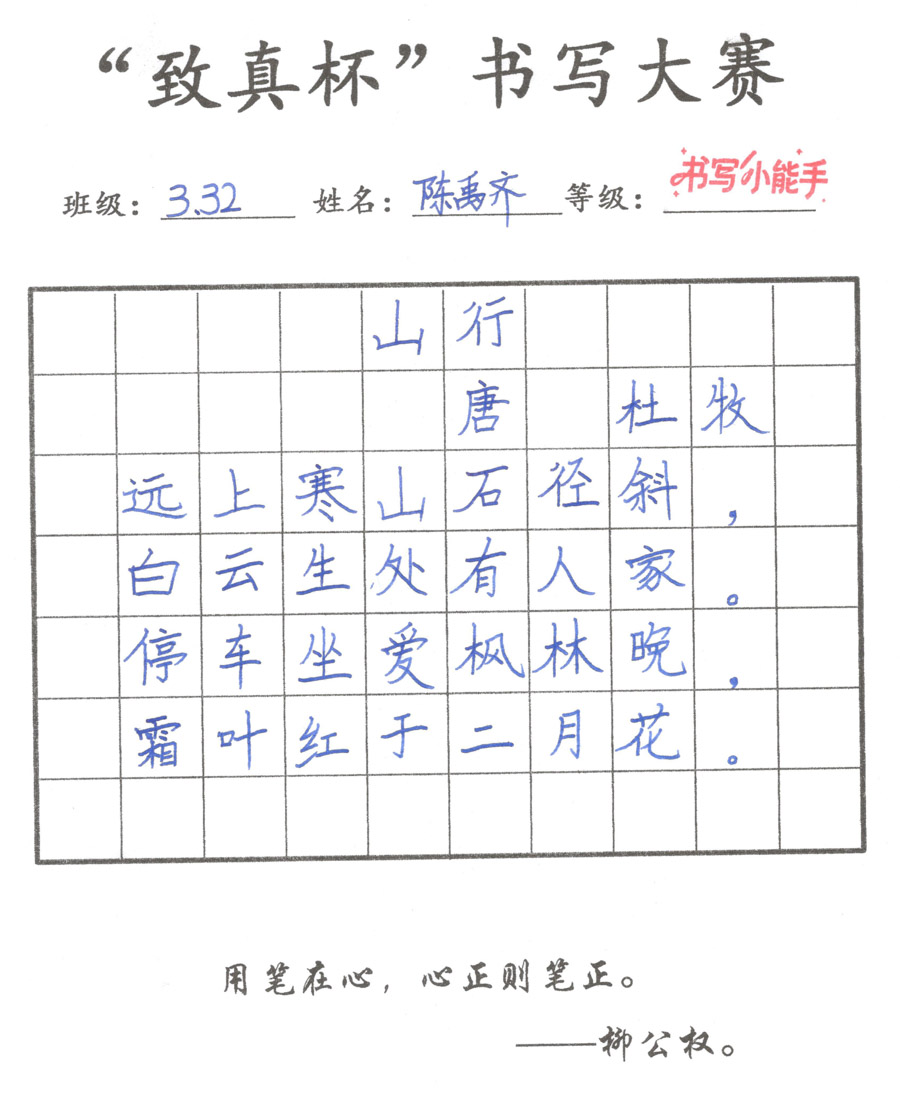 “致真杯”书写大赛
班级：3.32 姓名：陈禹齐 等级：书写小能手
山行
唐 杜牧
远上寒山石径斜，
白云生处有人家。
停车坐爱枫林晚，
霜叶红于二月花。
用笔在心，心正则笔正。
——柳公权。